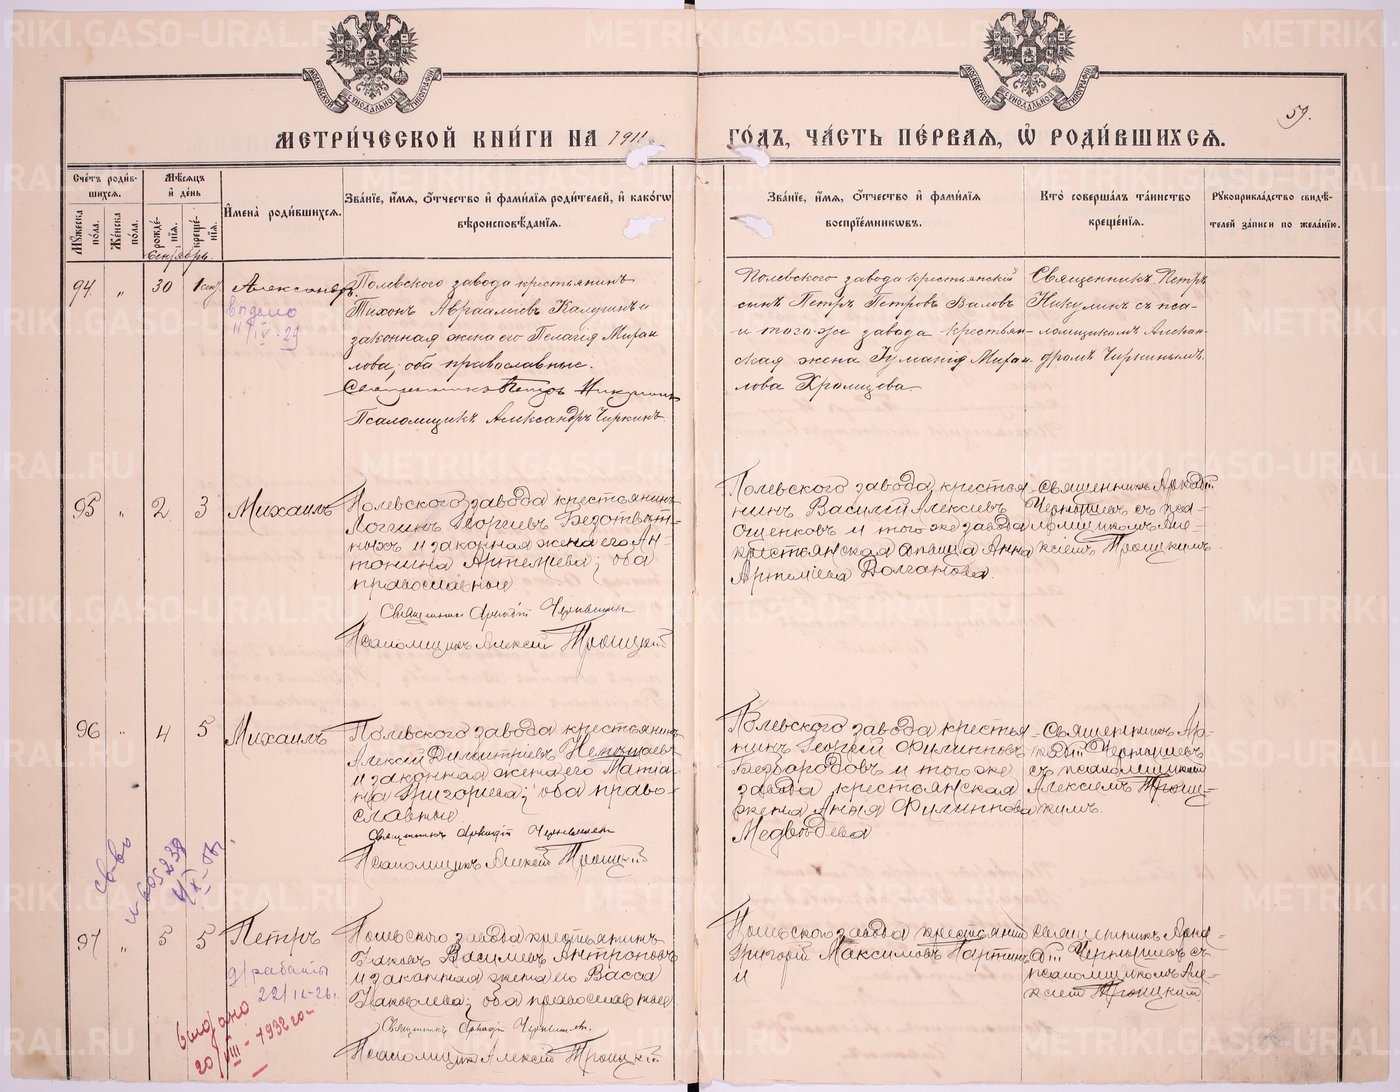 МЕТРИ́ЧЕСКОЙ КНИ́ГИ НА 1911
ГО́ДЪ, ЧА́СТЬ ПЕ́РВАЯ, Ѡ РОДИ́ВШИХСЯ.
59.
Сче́тъ роди́в-
шихся.
Му́жеска по́ла.
Же́нска по́ла.
Мѣ́сяцъ
и́ де́нь
рожде́-
нія.
креще́-
нія.
И҆мена̀ роди́вшихся.
Зва́ніе, и҆́мя, ѻ҆́тчество и҆ фами́лія роди́телей, и҆ како́гѡ
вѣроисповѣ́данія.
Зва́ніе, и҆́мя, ѻ҆́тчество и҆ фами́лія
воспріе́мниковъ.
Кто̀ соверша́лъ та́инство
креще́нія.
Рꙋкоприкла́дство свидѣ́-
телей за́писи по жела́нію.
Сентябрь
94. " 30 1 Александръ
Выдано
11/IV-29
Полевского завода крестьянинъ
Тихонъ Авраамовъ Калугинъ и
законная жена его Пелагія Миха
лова; оба православные.
Священникъ Петръ Никулинъ
Псаломщикъ Александръ Чиркинъ.
Полевского завода крестьянскій
сынъ Петръ Петровъ Валовъ
и того-же завода крестьян-
ская жена
лова Хромцова
Священникъ Петръ
Никулинъ съ пса-
ломщикомъ Алексан-
дромъ Чиркинымъ.
95 " 2 3 Михаилъ
Полевского завода крестьянинъ
Логинъ Георгіевъ Безответ-
ныхъ и законная жена его Ан-
тонина Артеміева; оба
православные
Священникъ Аркадій Чернышевъ
Псаломщикъ Алексій Троицкій
Полевского завода крестья-
нинъ Василій Алексіевъ
и того же завода
крестьянская Анна
Артеміева Долганова
Священникъ Аркадій
Чернышевъ съ пса-
ломщикомъ Але-
ксіемъ Троицкимъ.
96 " 4 5 Михаилъ
Полевского завода крестьянинъ
Алексій Димитріевъ
и законная жена его Матіа-
на Григорьева; оба право-
славные
Священникъ Аркадій Чернышевъ
Псаломщикъ Алексій Троицкій
Полевского завода крестья-
нинъ Георгій Филипповъ
Безбородовъ и того же
завода крестьянская
жена Анна Филиппова
Медведева
Священникъ Ар-
кадій Чернышевъ
съ псаломщикомъ
Алексіемъ Троиц-
кимъ.
97 " 5 5 Петръ
22/IX-26г.
Выдано
20/VIII-1932 год
Полевского завода крестьянинъ
Іаковъ Василіевъ Антроповъ
и законная жена его Васса
Іаковлева; оба православные
Священникъ Аркадій Чернышевъ.
Псаломщикъ Алексій Троицкій
Полевского завода крестьянинъ
Григорій Максимовъ Мартин
и
Священникъ Арка-
дій Чернышевъ съ
псаломщикомъ Але-
ксіемъ Троицкимъ
METRIKI.GASO-URAL.RU